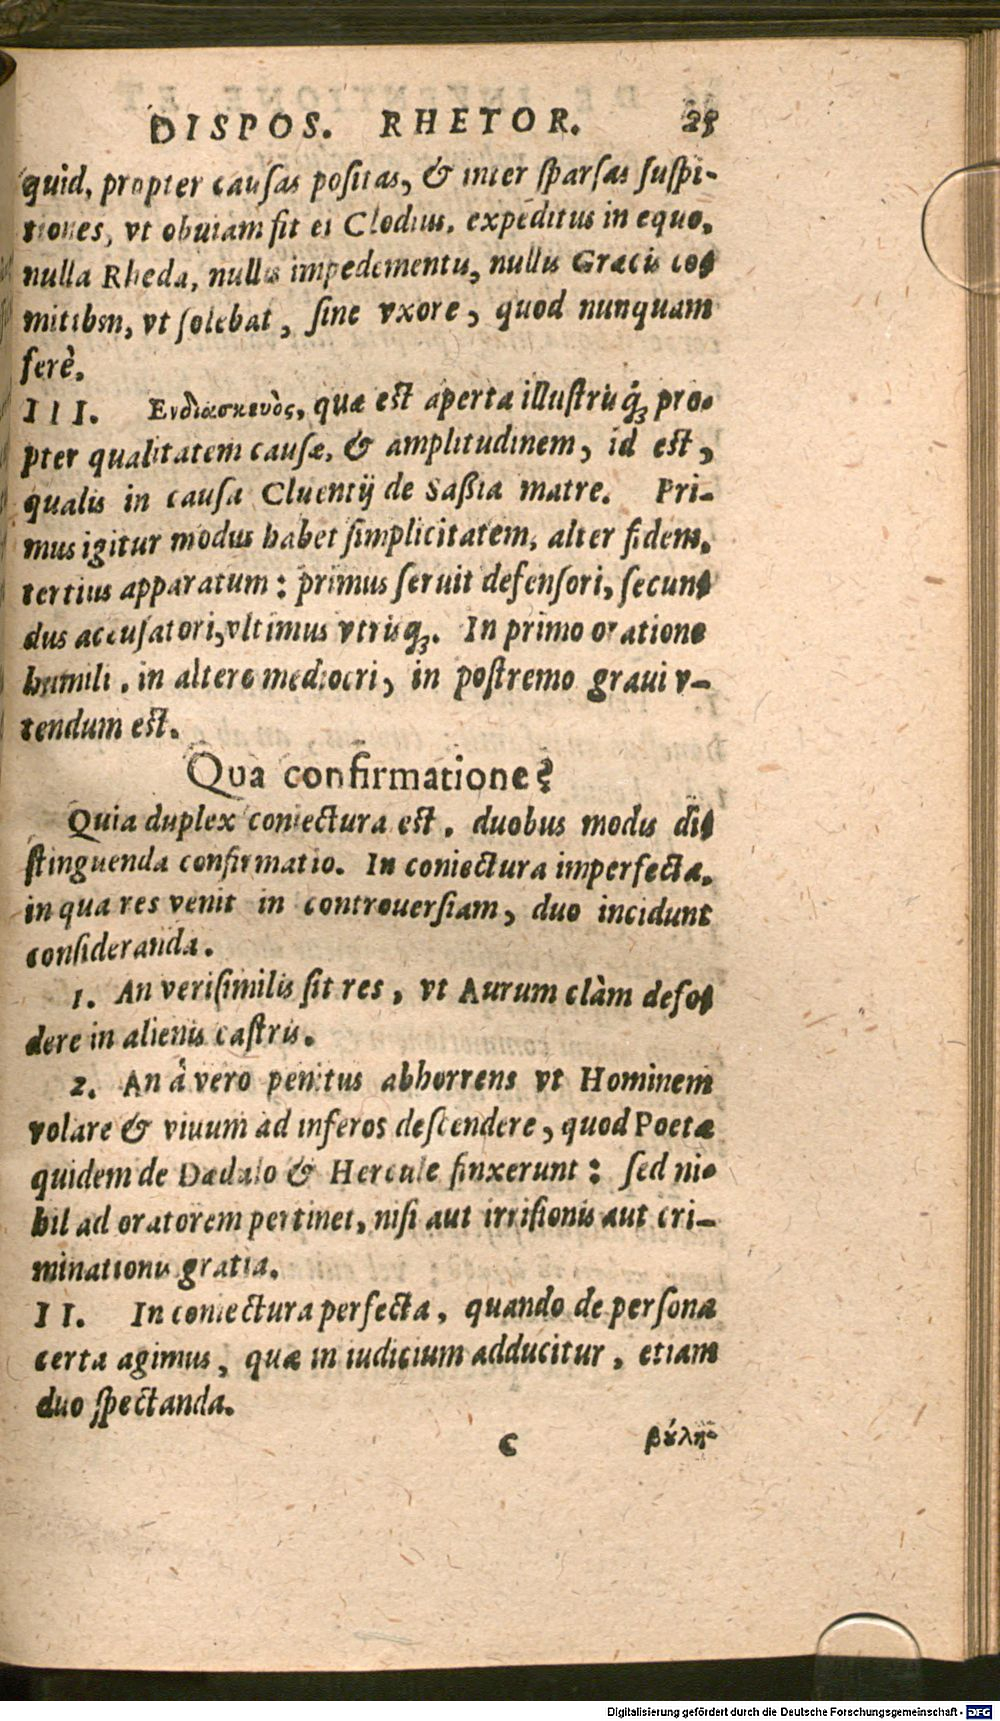 DISPOS. RHETOR. 25
quid, propter causas positas, & inter sparsas suspi-
tiones, vt obuiam sit ei Clodius, expeditus in equo,
nulla Rheda, nullis impedementis, nullis Græcis co-
mitibus, vt solebat, sine vxore, quod nunquam
ferè.
III. Ενδιάσκευὸς, quæ est aperta illustrisq́; pro-
pter qualitatem causæ, & amplitudinem, id est,
qualis in causa Cluentij de Saßia matre. Pri-
mus igitur modus habet simplicitatem, alter fidem,
tertius apparatum: primus seruit defensori, secun-
dus accusatori, vltimus vtrisq;. In primo oratione
humili, in altero mediocri, in postremo graui v-
tendum est.
Qua confirmatione?
Quia duplex coniectura est, duobus modis di-
stinguenda confirmatio. In coniectura imperfecta,
in qua res venit in controuersiam, duo incidunt
consideranda.
1. An verisimilis sit res, vt Aurum clàm defo-
dere in alienis castris.
2. An à vero penitus abhorrens vt Hominem
volare & viuum ad inferos descendere, quod Poetæ
quidem de Dædalo & Hercule finxerunt: sed ni-
hil ad oratorem pertinet, nisi aut irrisionis aut cri-
minationis gratia.
II. In coniectura perfecta, quando de persona
certa agimus, quæ in iudicium adducitur, etiam
duo spectanda.
C βȣ́λη-
Digitalisierung gefördert durch die Deutsche Forschungsgemeinschaft - DFG